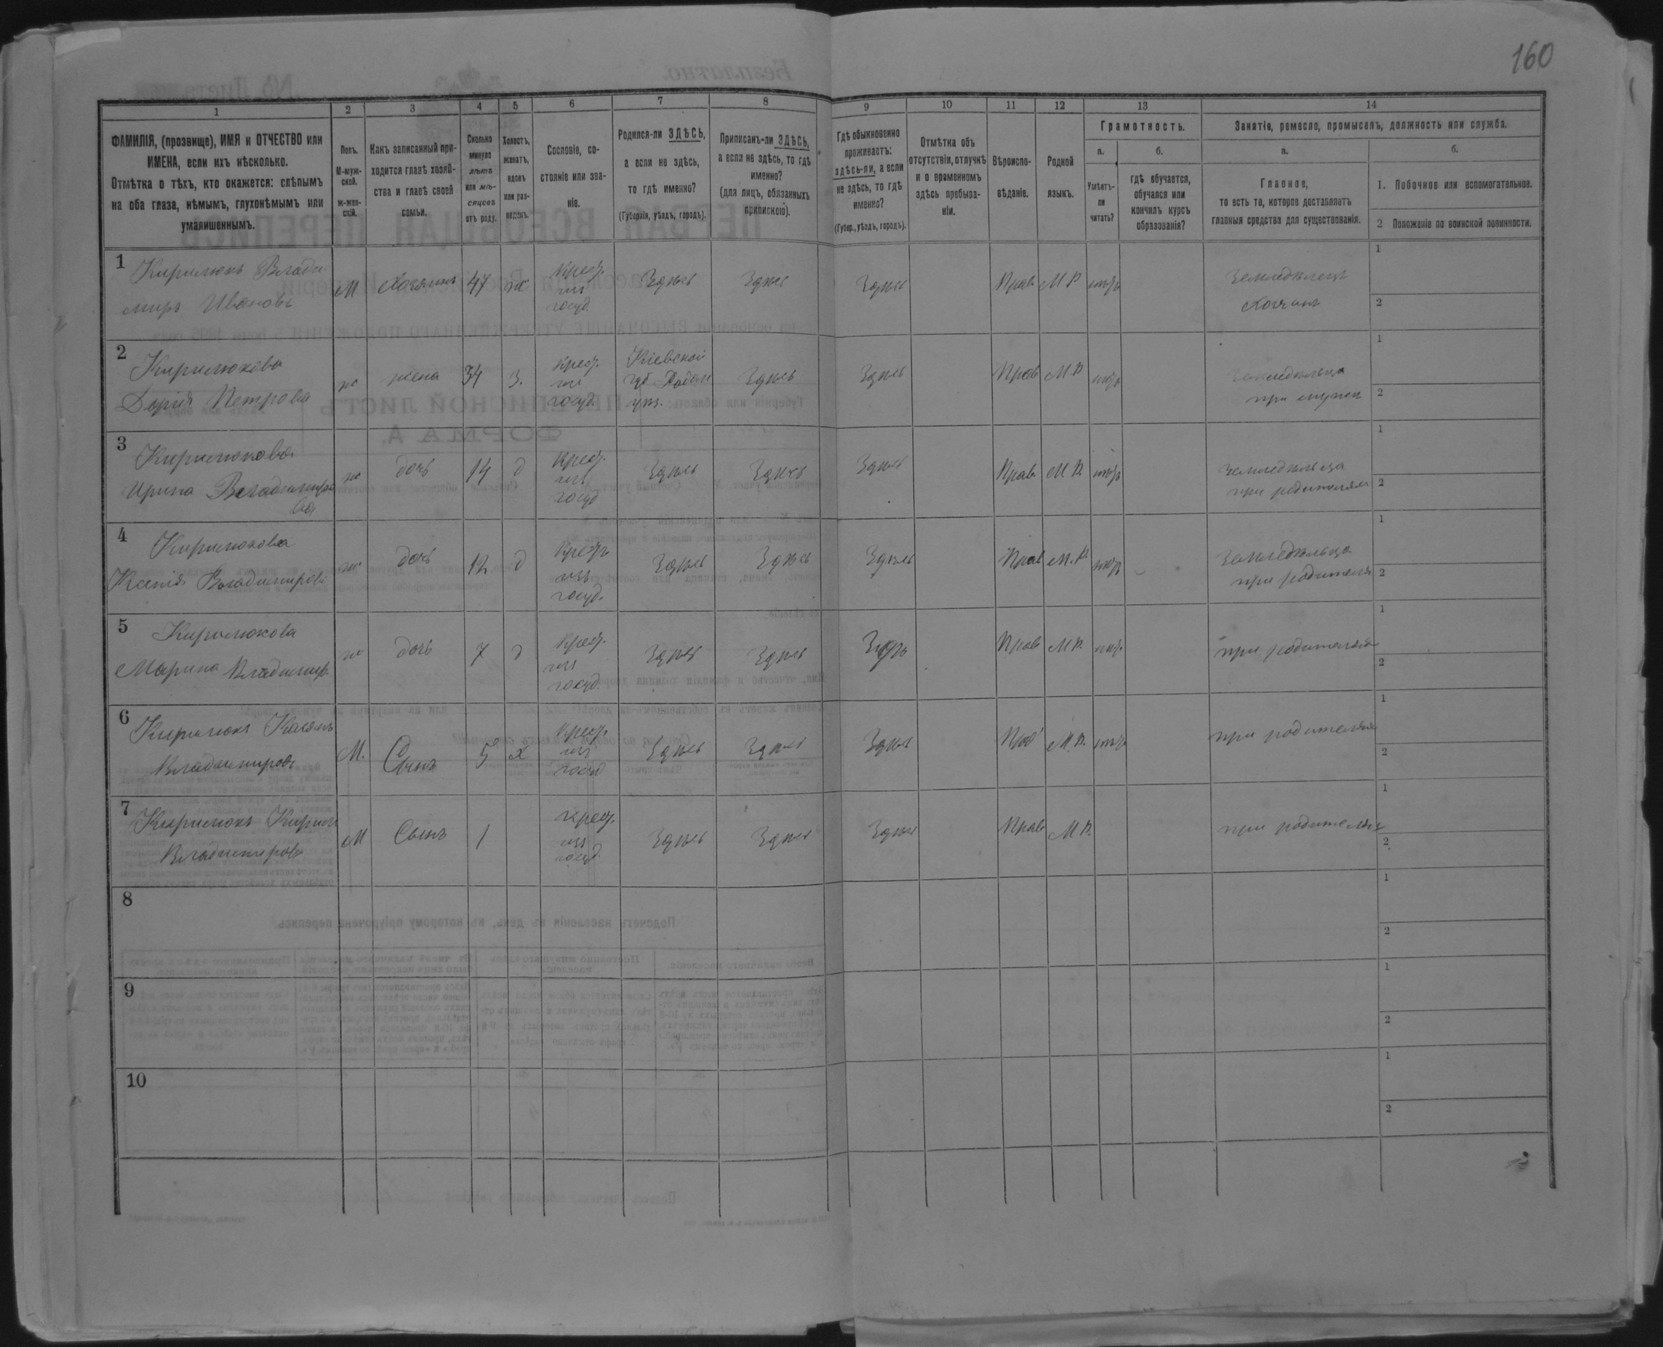 160
1
2
3
4
5
6
7
8
9
10
11
12
13
14
ФАМИЛІЯ, (прозвище), ИМЯ и ОТЧЕСТВО или
ИМЕНА, если ихъ нѣсколько.
Отмѣтка о тѣхъ, кто окажется: слѣпымъ
на оба глаза, нѣмымъ, глухонѣмымъ или
умалишеннымъ.
Полъ.
М-муж-
ской.
Ж-жен-
скій.
Какъ записанный при-
ходится главѣ хозяй-
ства и главѣ своей
семьи.
Сколько
минуло
лѣтъ
или мѣ-
сяцевъ
отъ роду.
Холостъ,
женатъ,
вдовъ
или раз-
веденъ.
Сословіе, со-
стояніе или зва-
ніе.
Родился-ли ЗДѢСЬ,
а если не здѣсь,
то гдѣ именно?
(Губернія, уѣздъ, городъ).
Приписанъ-ли ЗДѢСЬ,
а если не здѣсь, то гдѣ
именно?
(для лицъ, обязанныхъ
припискою).
Гдѣ обыкновенно
проживаетъ:
здѣсь-ли, а если
не здѣсь, то гдѣ
именно?
(Губер., уѣздъ, городъ).
Отмѣтка объ
отсутствіи, отлучкѣ
и о временномъ
здѣсь пребыва-
ніи.
Вѣроиспо-
вѣданіе.
Родной
языкъ.
Грамотность.
а.
Умѣетъ-
ли
читать?
б.
гдѣ обучается,
обучался или
кончилъ курсъ
образованія?
Занятія, ремесло, промыселъ, должность или служба.
а.
Главное,
то есть то, которое доставляетъ
главныя средства для существованія.
б.
1. Побочное или вспомогательное.
2 Положеніе по воинской повинности.
1
Кирилюкъ Влади
миръ Ивановъ
М
Хозяинъ
47
ж
Крест.
изъ
госуд.
Здѣсь
Здѣсь
Здѣсь
Прав
М Р
негр
Земледѣлецъ
Хозяинъ
1
2
2
Кирилюкова
Дарія Петрова
ж
жена
34
з.
Крест.
изъ
госуд.
Кіевской
губ.
уѣз.
Здѣсь
Здѣсь
Прав
М Р.
негр
земледѣльца
при мужѣ
1
2
3
Кирилюкова
Ирина Владимиро
ва
ж
дочь
14
д
Крест.
изъ
госуд
Здѣсь
Здѣсь
Здѣсь
Прав
М Р.
негр
земледѣльца
при родителях
1
2
4
Кирилюкова
Ксенія Владимирова
ж
дочь
12
д
Крест
изъ
госуд.
Здѣсь
Здѣсь
Здѣсь
Прав
М. Р
негр
земледѣльца
при родителях
1
2
5
Кирилюкова
Марина Владимир
ж
дочь
7
д
Крест.
изъ
госуд.
Здѣсь
Здѣсь
Здѣсь
Прав
М Р.
негр.
при родителях
1
2
6
Кирилюкъ Касьянъ
Владимировъ
М.
Сынъ
5
х
Крест.
изъ
госуд
Здѣсь
Здѣсь
Здѣсь
Прав
М. Р.
негр
при родителях
1
2
7
Кирилюкъ Кирил
Владимировъ
М
Сынъ
1
Крест.
изъ
госуд.
Здѣсь
Здѣсь
Здѣсь
Прав
М Р.
при родителях
1
2
8
1
2
9
1
2
10
1
2